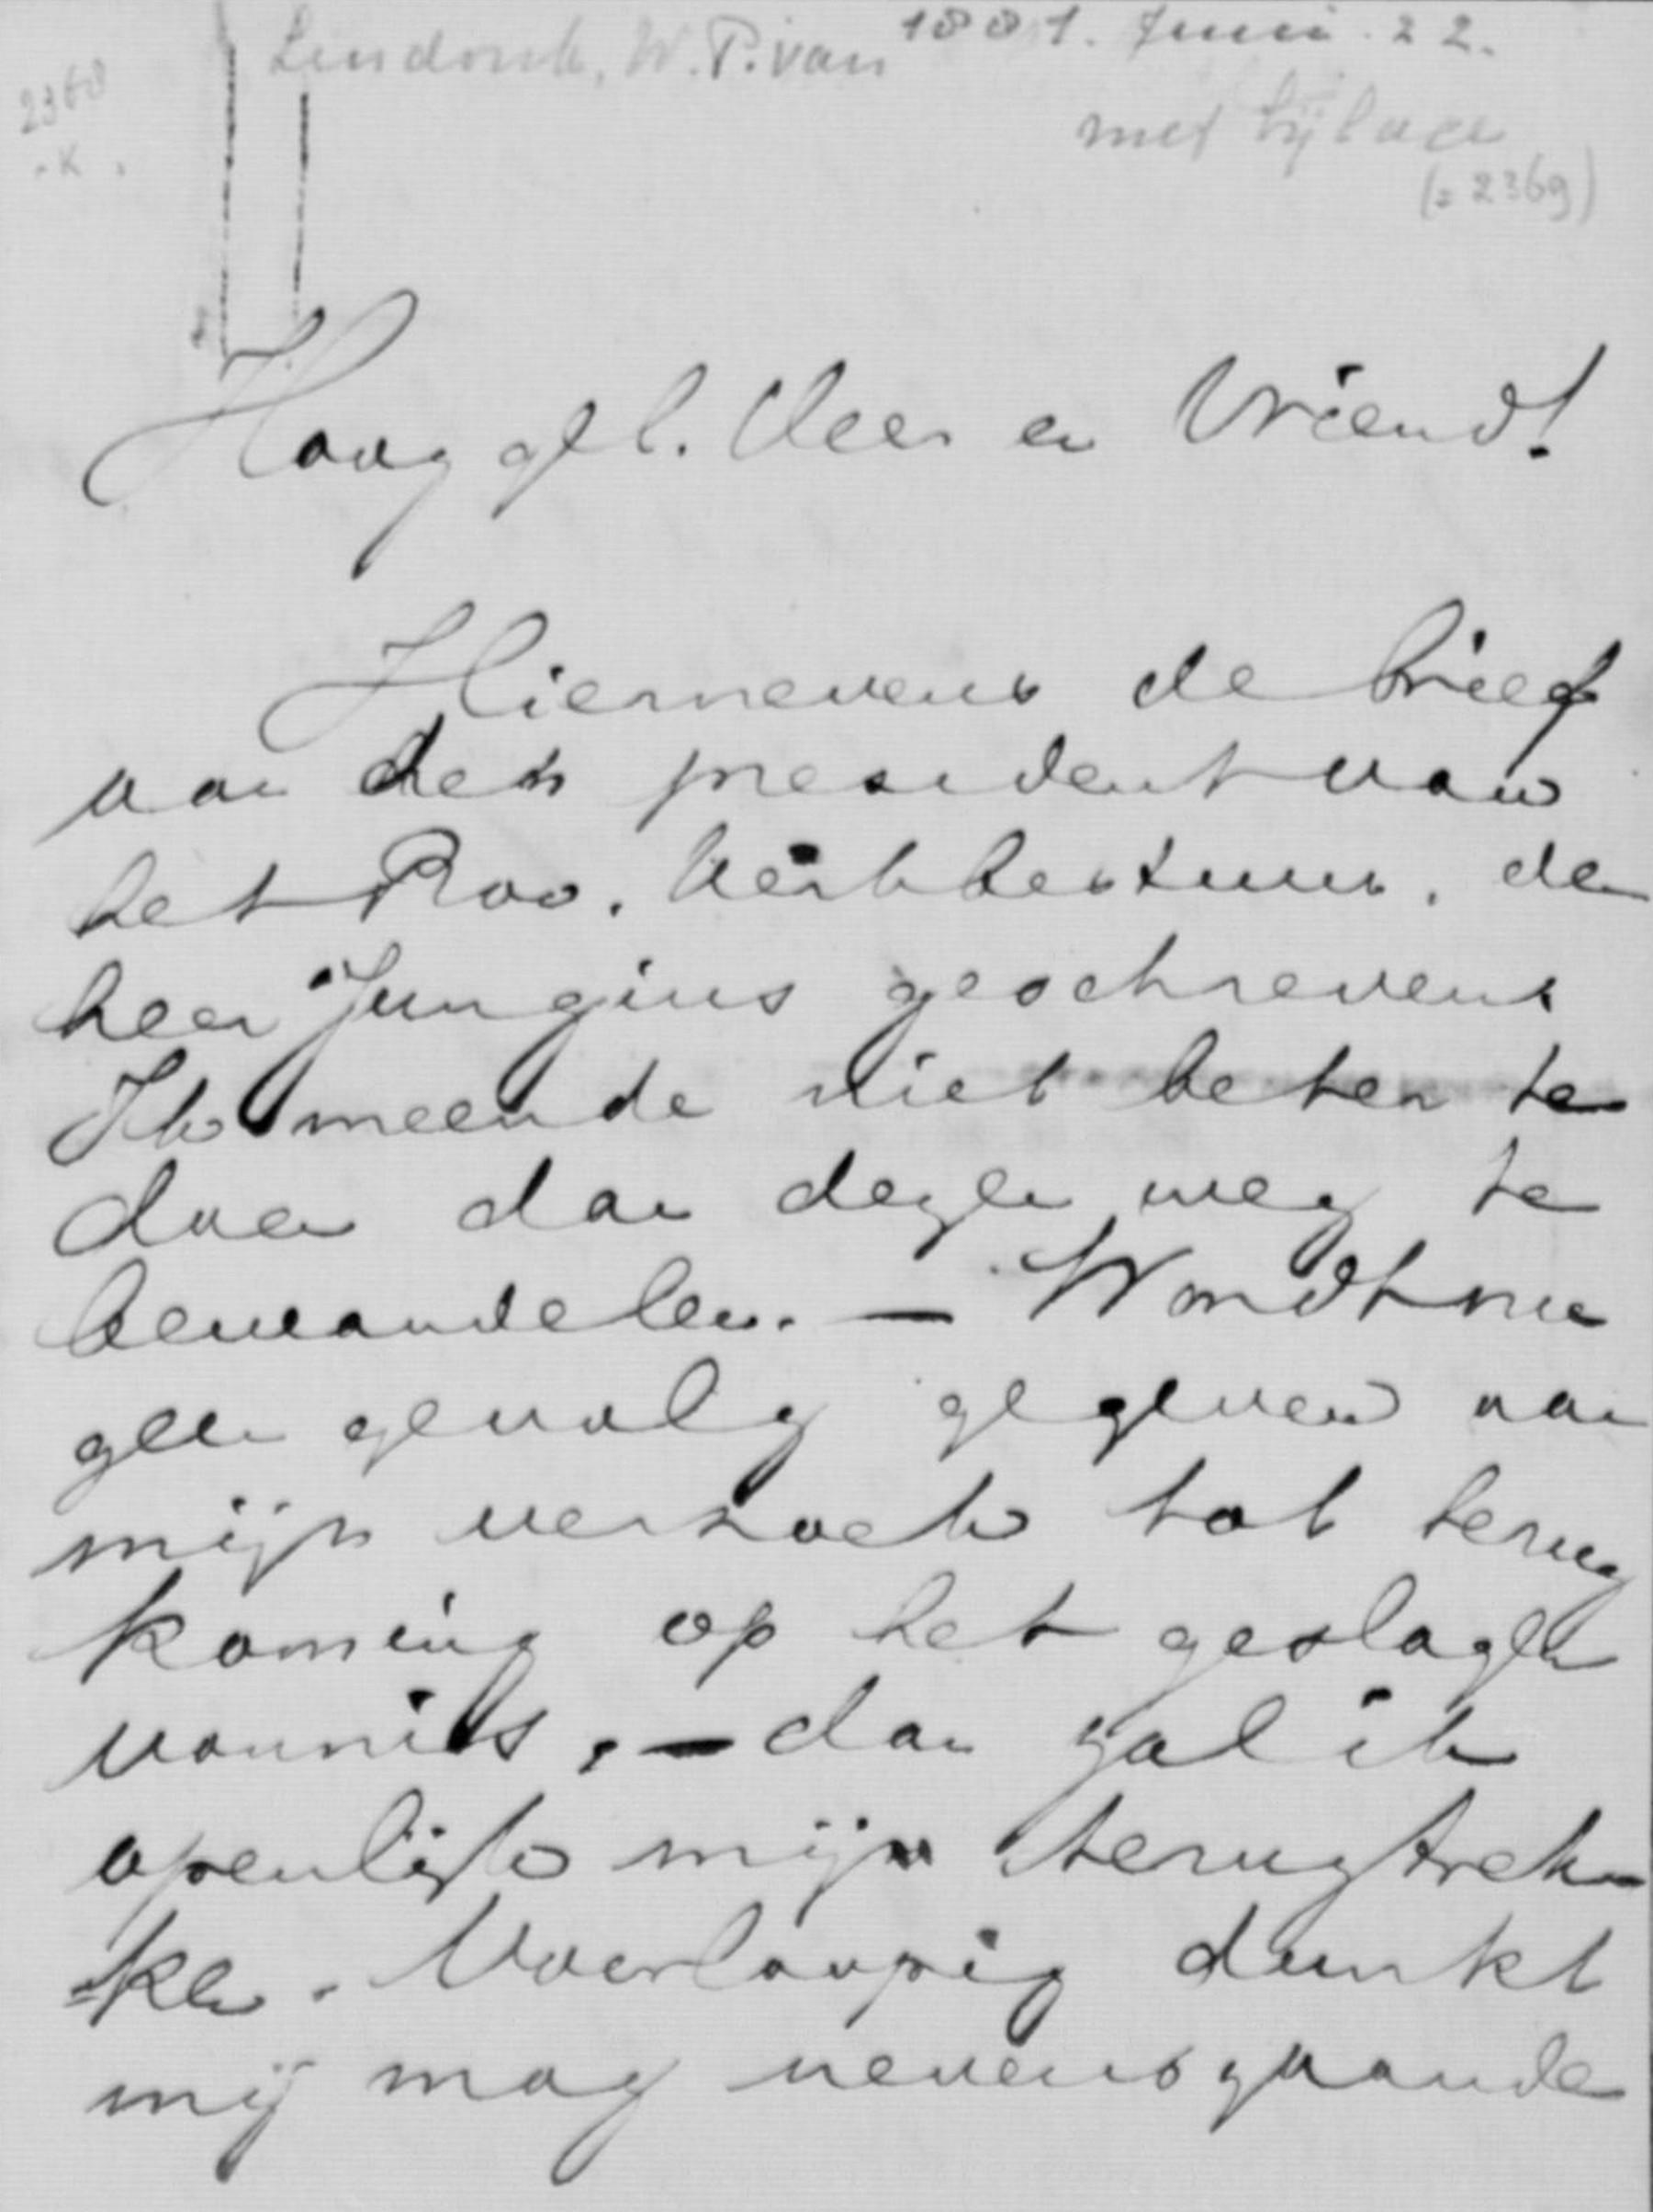 Lindonk, W. P. van 1881. Juni. 22.
2368
K.
met bijlage
(= 2369)
Hooggel. Heer en Vriend!
Hiernevens de brief
van den president van
het Prov. Kerkbestuur. den
heer Jungius geschreven
Ik meende niet beter te
doen dan dezen weg te
bewandelen. — Wordt nu
geen gevolg gegeven aan
mijn verzoek tot terug
koming op het geslagen
vonnis, — dan zal ik
openlijk mijn terugtrek-
=ken. Voorloopig dunkt
mij mag nevensgaande